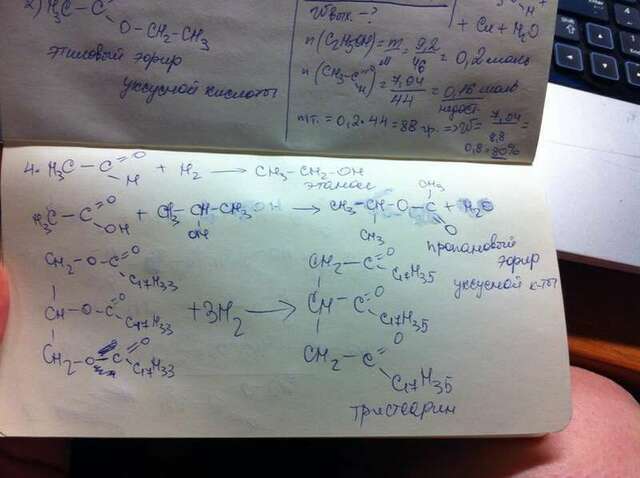 2) H₃C - C
O - CH₂ - CH₃
этиловый эфир
уксусной кислоты
Wвых. - ?
+ Cu + H₂O
n(C₂H₅OH) = m/M = 9,2/46 = 0,2 моль
n(CH₃-C H) = 7,04/44 = 0,16 моль
недост.
mт. = 0,2 · 44 = 88 гр. => W = 7,04/8,8 =
0,8 = 80%
4. H₃C - C =O H + H₂ → CH₃ - CH₂ - OH
этанол
H₃C - C =O OH + CH₃ - CH - CH₃ OH → CH₃ - CH - O - C =O CH₃ + H₂O
OH
CH₃
пропановый
эфир
уксусной к-ты
CH₂ - O - C =O C₁₇H₃₃
CH - O - C =O C₁₇H₃₃
CH₂ - O - C =O C₁₇H₃₃
+ 3H₂ →
CH₂ - C =O C₁₇H₃₅
CH - C =O C₁₇H₃₅
CH₂ - C =O C₁₇H₃₅
тристеарин